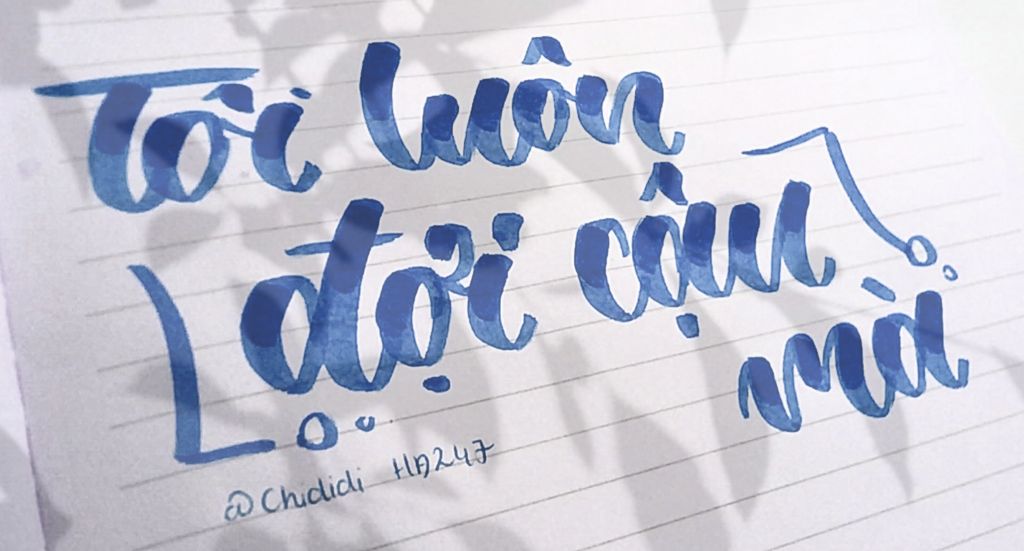 Tôi luôn
đợi cậu
mà
@Chididi HA247